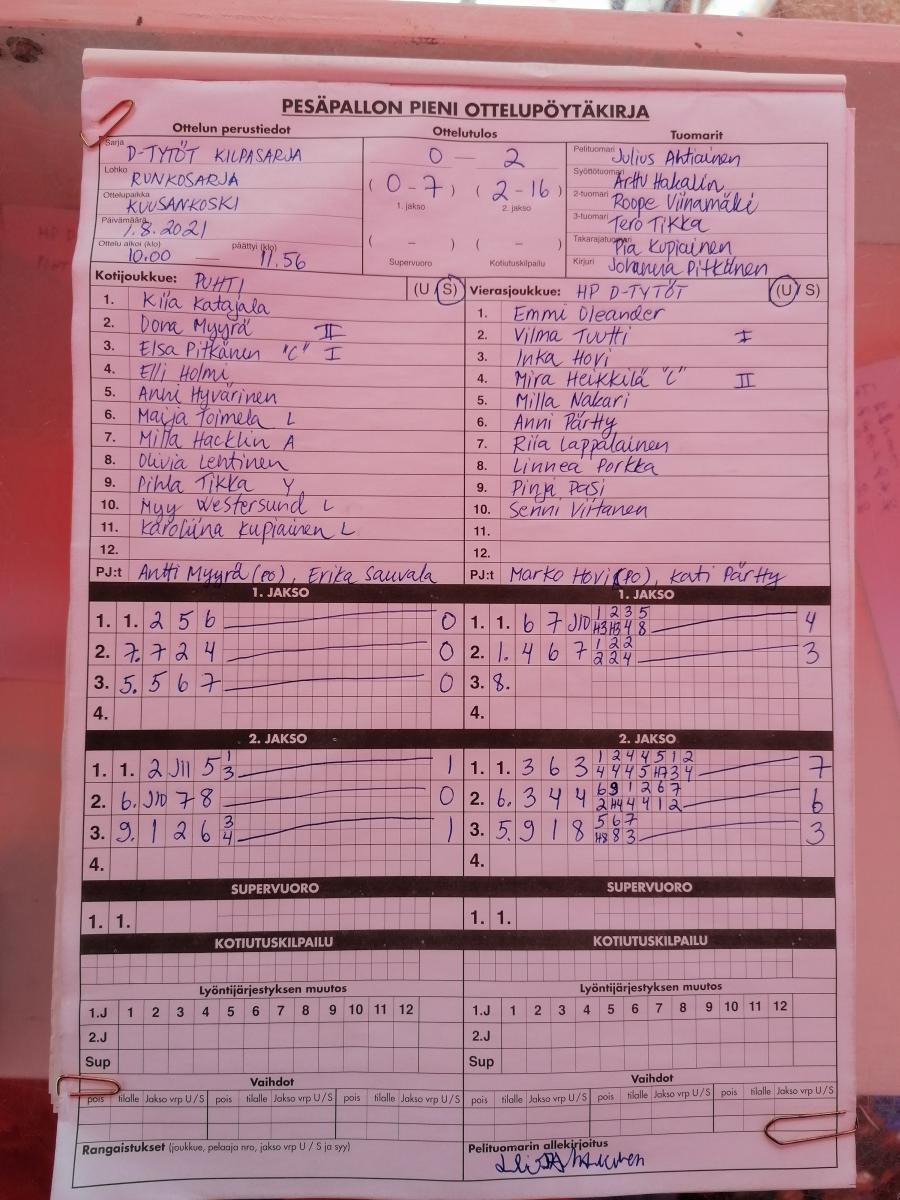 PESÄPALLON PIENI OTTELUPÖYTÄKIRJA
Ottelun perustiedot
Sarja D-TYTÖT KILPASARJA
Lohko RUNKOSARJA
Ottelupaikka KUUSANKOSKI
Päivämäärä 1.8.2021
Ottelu alkoi (klo) 10.00 — päättyi (klo) 11.56
Ottelutulos
0 — 2
( 0-7 ) ( 2-16 )
1. jakso 2. jakso
( - ) ( - )
Supervuoro Kotiutuskilpailu
Tuomarit
Pelituomari Julius Ahtiainen
Syöttötuomari Arttu Hakalin
2-tuomari Roope Viinamäki
3-tuomari Tero Tikka
Takarajatuomari Pia Kupiainen
Kirjuri Johanna Pitkänen
Kotijoukkue: PUHTI (U S)
1. Kiia Katajala
2. Dora Myyrä II
3. Elsa Pitkänen "C" I
4. Elli Holmi
5. Anni Hyvärinen
6. Maija Toimela L
7. Milla Hacklin A
8. Olivia Lehtinen
9. Pihla Tikka Y
10. Myy Westersund L
11. Karoliina Kupiainen L
12.
PJ:t Antti Myyrä (PO), Erika Sauvala
Vierasjoukkue: HP D-TYTÖT (U / S)
1. Emmi Oleander
2. Vilma Tuutti I
3. Inka Hovi
4. Mira Heikkilä "C" II
5. Milla Nakari
6. Anni Pärtty
7. Riia Lappalainen
8. Linnea Porkka
9. Pinja Pasi
10. Senni Virtanen
11.
12.
PJ:t Marko Hovi (PO), Kati Pärtty
1. JAKSO
1. 1. 2 5 6 0
2. 7. 7 2 4 0
3. 5. 5 6 7 0
4.
1. JAKSO
1. 1. 6 7 J10 1 2 3 5 4
H3 H3 4 8
2. 1. 4 6 7 1 2 2 3
2 2 4
3. 8.
4.
2. JAKSO
1. 1. 2 J11 5 1 1
3
2. 6. J10 7 8 0
3. 9. 1 2 6 3 1
4
4.
2. JAKSO
1. 1. 3 6 3 1 2 4 4 5 1 2 7
4 4 4 5 H7 3 4
2. 6. 3 4 4 6 9 1 2 6 7 6
2 H4 4 4 1 2
3. 5. 9 1 8 5 6 7 3
H8 8 3
4.
SUPERVUORO
1. 1.
SUPERVUORO
1. 1.
KOTIUTUSKILPAILU
KOTIUTUSKILPAILU
Lyöntijärjestyksen muutos
1.J 1 2 3 4 5 6 7 8 9 10 11 12
2.J
Sup
Lyöntijärjestyksen muutos
1.J 1 2 3 4 5 6 7 8 9 10 11 12
2.J
Sup
Vaihdot
pois tilalle Jakso vrp U / S pois tilalle Jakso vrp U / S pois tilalle Jakso vrp U / S
Vaihdot
pois tilalle Jakso vrp U / S pois tilalle Jakso vrp U / S pois tilalle Jakso vrp U / S
Rangaistukset (joukkue, pelaaja nro, jakso vrp U / S ja syy)
Pelituomarin allekirjoitus